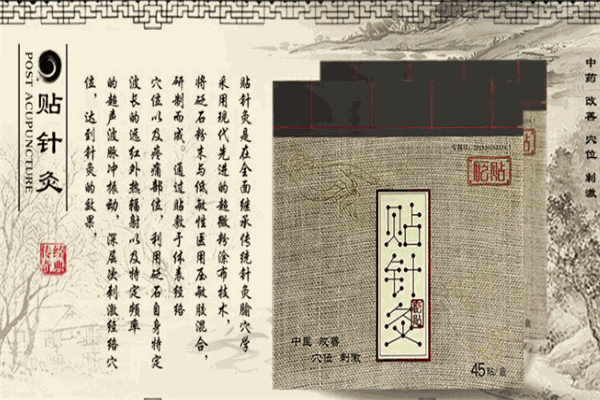 中药 改善 穴位 刺激
贴针灸是在全面继承传统针灸腧穴学
采用现代先进的超微粉涂布技术，
将砭石粉末与低敏性医用压敏胶混合，
研制而成。通过贴敷于体表经络
穴位以及疼痛部位，利用砭石自身特定
波长的远红外热辐射以及特定频率
的超声波脉冲振动，深层次刺激经络穴
位，达到针灸的效果。
贴针灸
POST ACUPUNCTURE
经典
传奇
贴针灸
中医 改善
穴位 刺激
45贴/盒